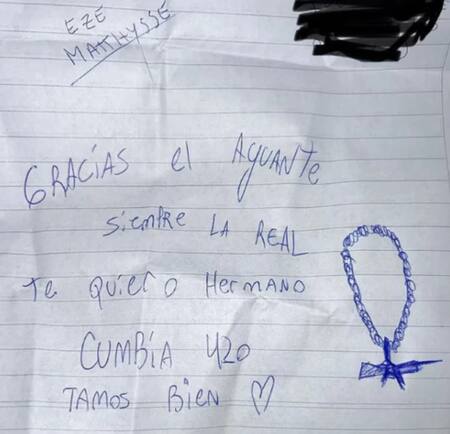 EZE
MATTHYSSE
GRACIAS el AGUANTE
siempre LA REAL
Te quiero Hermano
CUMBIA 420
TAMOS BIEN ♡